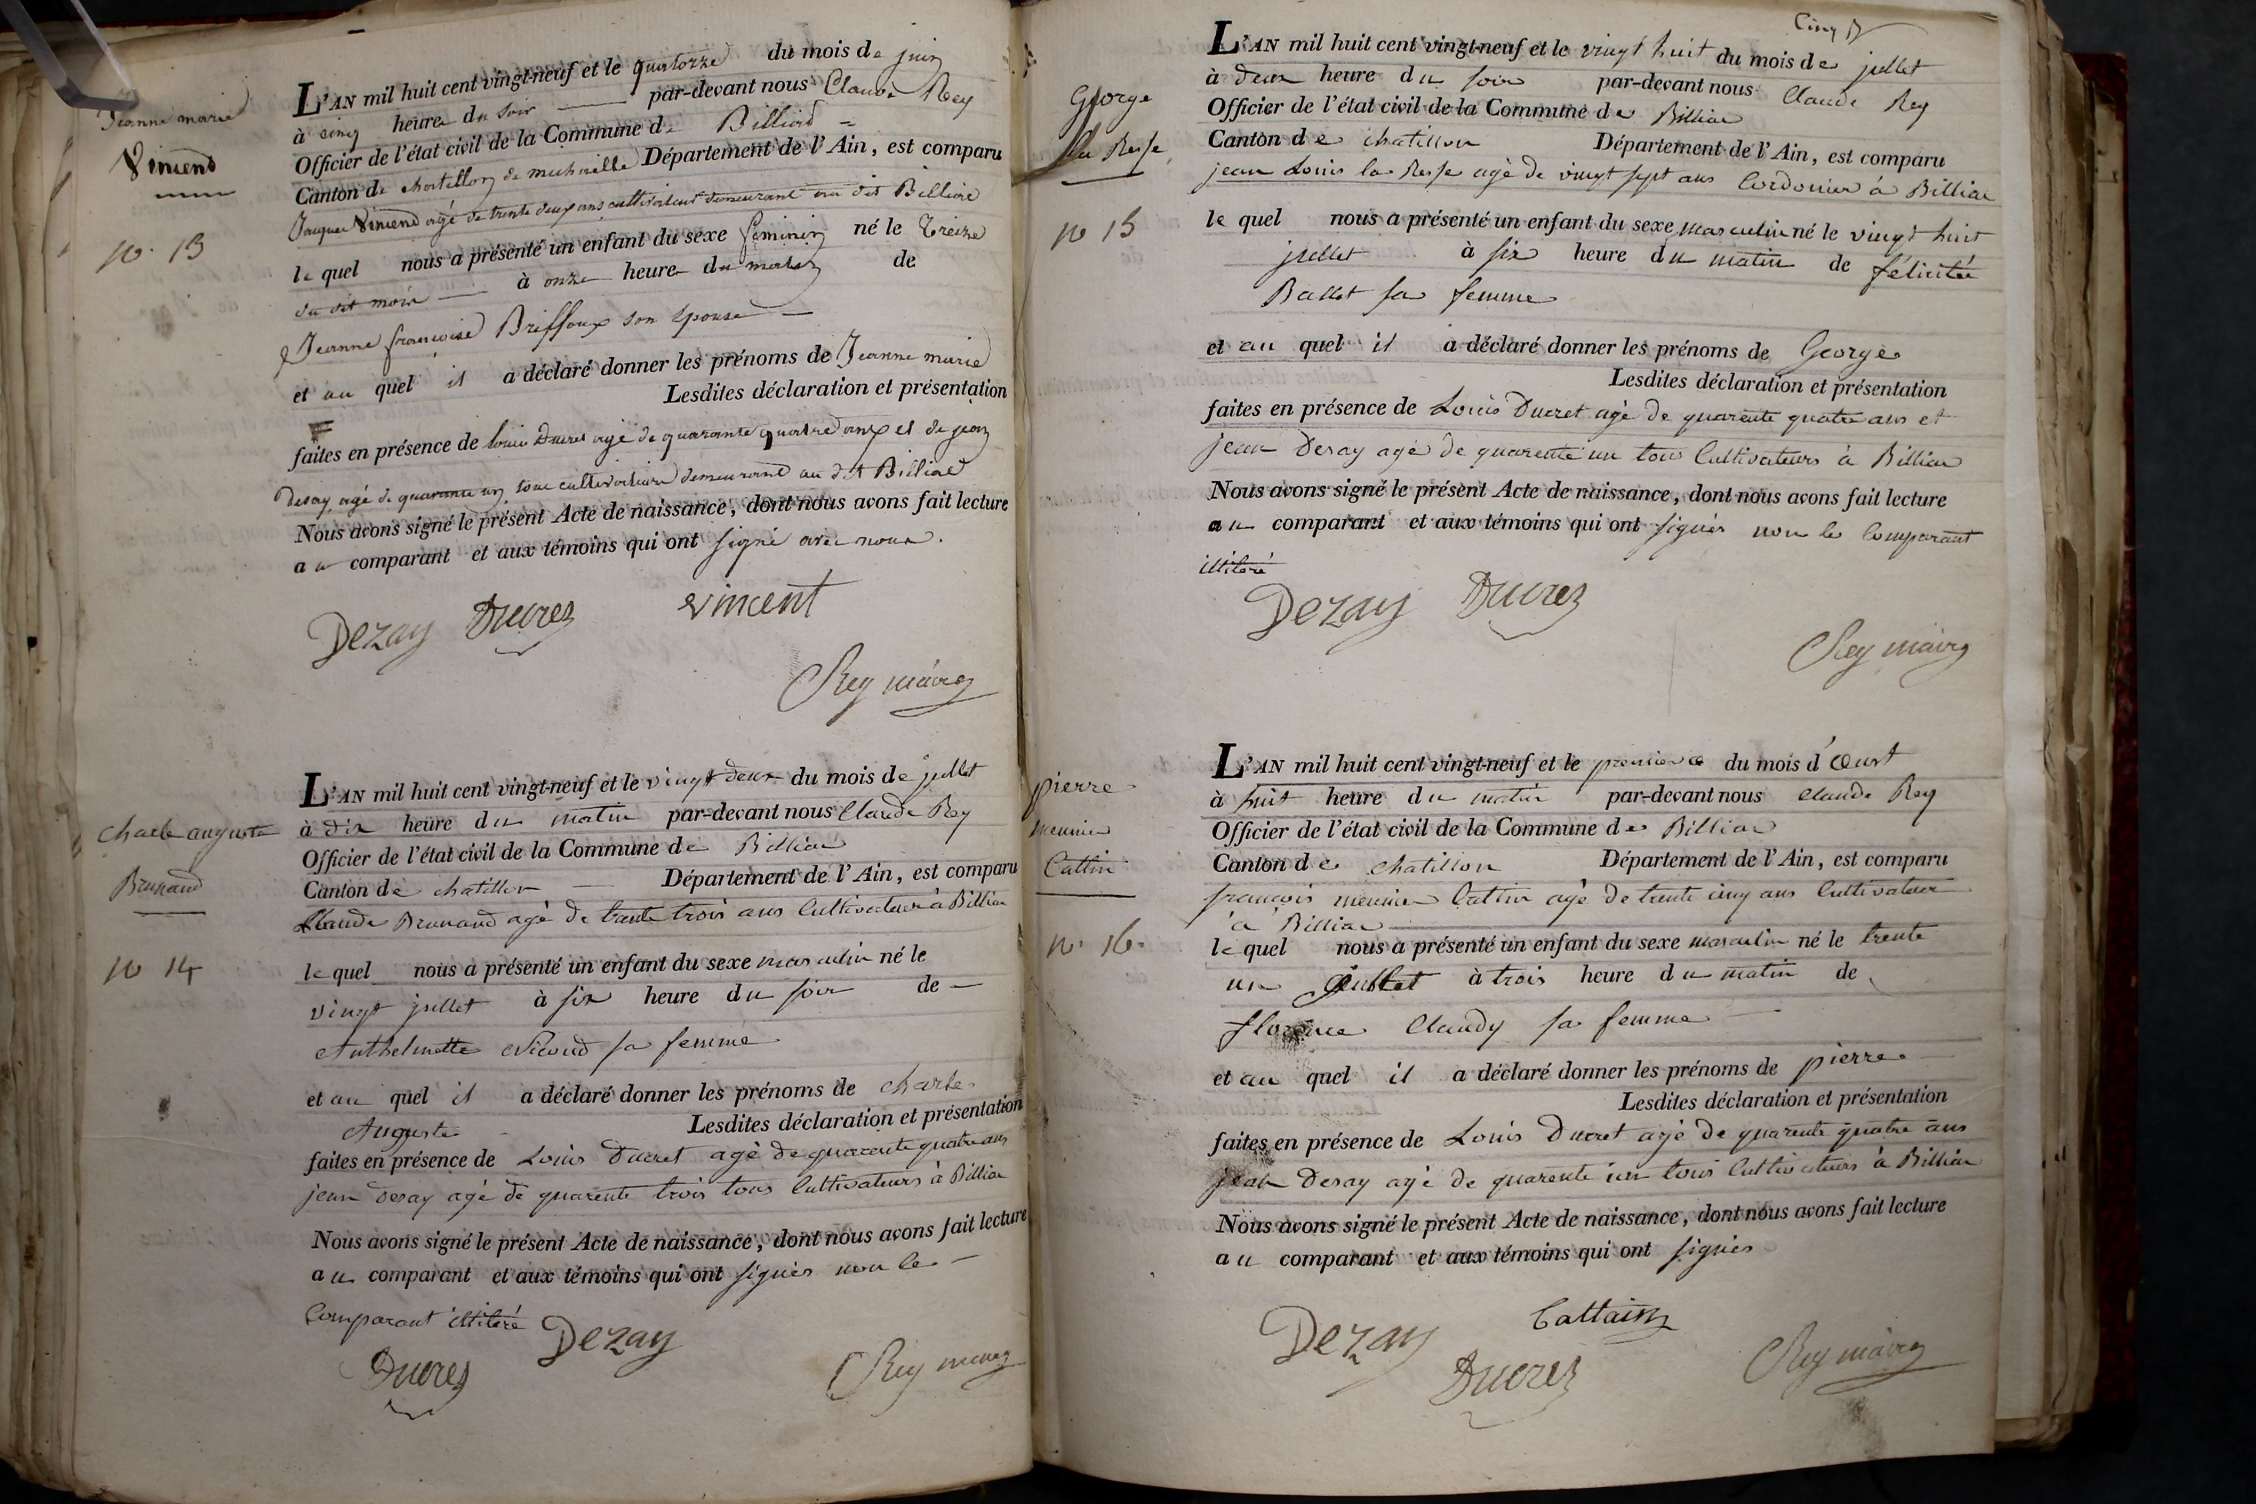 Jeanne marie
Vincend
no. 13
L'AN mil huit cent vingt-neuf et le quatorze du mois de juin
à cinq heure du soir par-devant nous Claude Rey
Officier de l'état civil de la Commune de Billiad
Canton de chatillon de michaille Département de l'Ain, est comparu
Jacques Vincend agé de trente deux ans cultivateur demeurant au dit Billiad
le quel nous a présenté un enfant du sexe feminin né le treize
du dit mois à onze heure du matin de
Jeanne francoise Briffoux son epouse
et au quel il a déclaré donner les prénoms de Jeanne marie
Lesdites déclaration et présentation
faites en présence de louis Ducret agé de quarante quatre ans et de jean
Desay agé de quarante un tous cultivateurs demeurant au dit Billiad
Nous avons signé le présent Acte de naissance, dont nous avons fait lecture
au comparant et aux témoins qui ont signé avec nous.
Dezay Ducrez vincent
Rey maire
charle auguste
Brunand
no 14
L'AN mil huit cent vingt-neuf et le vingt deux du mois de jullet
à dix heure du matin par-devant nous Claude Rey
Officier de l'état civil de la Commune de Billiac
Canton de chatillon Département de l'Ain, est comparu
Claude Brunand agé de trante trois ans Cultivateur à Billiac
le quel nous a présenté un enfant du sexe masculin né le
vingt jullet à six heure du soir de
Anthelmette Nicoud sa femme
et au quel il a déclaré donner les prénoms de charle
Auguste Lesdites déclaration et présentation
faites en présence de Louis Ducret agé de quarente quatre ans
jean desay agé de quarente trois tous Cultivateurs à Billiac
Nous avons signé le présent Acte de naissance, dont nous avons fait lecture
au comparant et aux témoins qui ont signés non le
Comparant illiteré
Dezay
Ducrez
Rey maire
Cinq
George
La Resse
no 15
L'AN mil huit cent vingt-neuf et le vingt huit du mois de jullet
à deux heure du soir par-devant nous Claude Rey
Officier de l'état civil de la Commune de Billiac
Canton de chatillon Département de l'Ain, est comparu
jean Louis la Resse agé de vingt sept ans Cordonier à Billiac
le quel nous a présenté un enfant du sexe masculin né le vingt huit
jullet à six heure du matin de félicitée
Ballet sa femme
et au quel il a déclaré donner les prénoms de George
Lesdites déclaration et présentation
faites en présence de Louis Ducret agé de quarente quatre ans et
jean Desay agé de quarente un tous Cultivateurs à Billiac
Nous avons signé le présent Acte de naissance, dont nous avons fait lecture
au comparant et aux témoins qui ont signés non le Comparant
illiteré
Dezay Ducrez
Rey maire
pierre
meunier
Cattin
no. 16.
L'AN mil huit cent vingt-neuf et le premier du mois d'oust
à huit heure du matin par-devant nous Claude Rey
Officier de l'état civil de la Commune de Billiac
Canton de chatillon Département de l'Ain, est comparu
françois meunier Cattin agé de trente cinq ans Cultivateur
à Billiac
le quel nous a présenté un enfant du sexe masculin né le trente
un Jullet à trois heure du matin de
florence Claudy sa femme
et au quel il a déclaré donner les prénoms de pierre
Lesdites déclaration et présentation
faites en présence de Louis Ducret agé de quarente quatre ans
jean Desay agé de quarente un tous Cultivateurs à Billiac
Nous avons signé le présent Acte de naissance, dont nous avons fait lecture
au comparant et aux témoins qui ont signés
Dezay Cattain
Ducrez
Rey maire